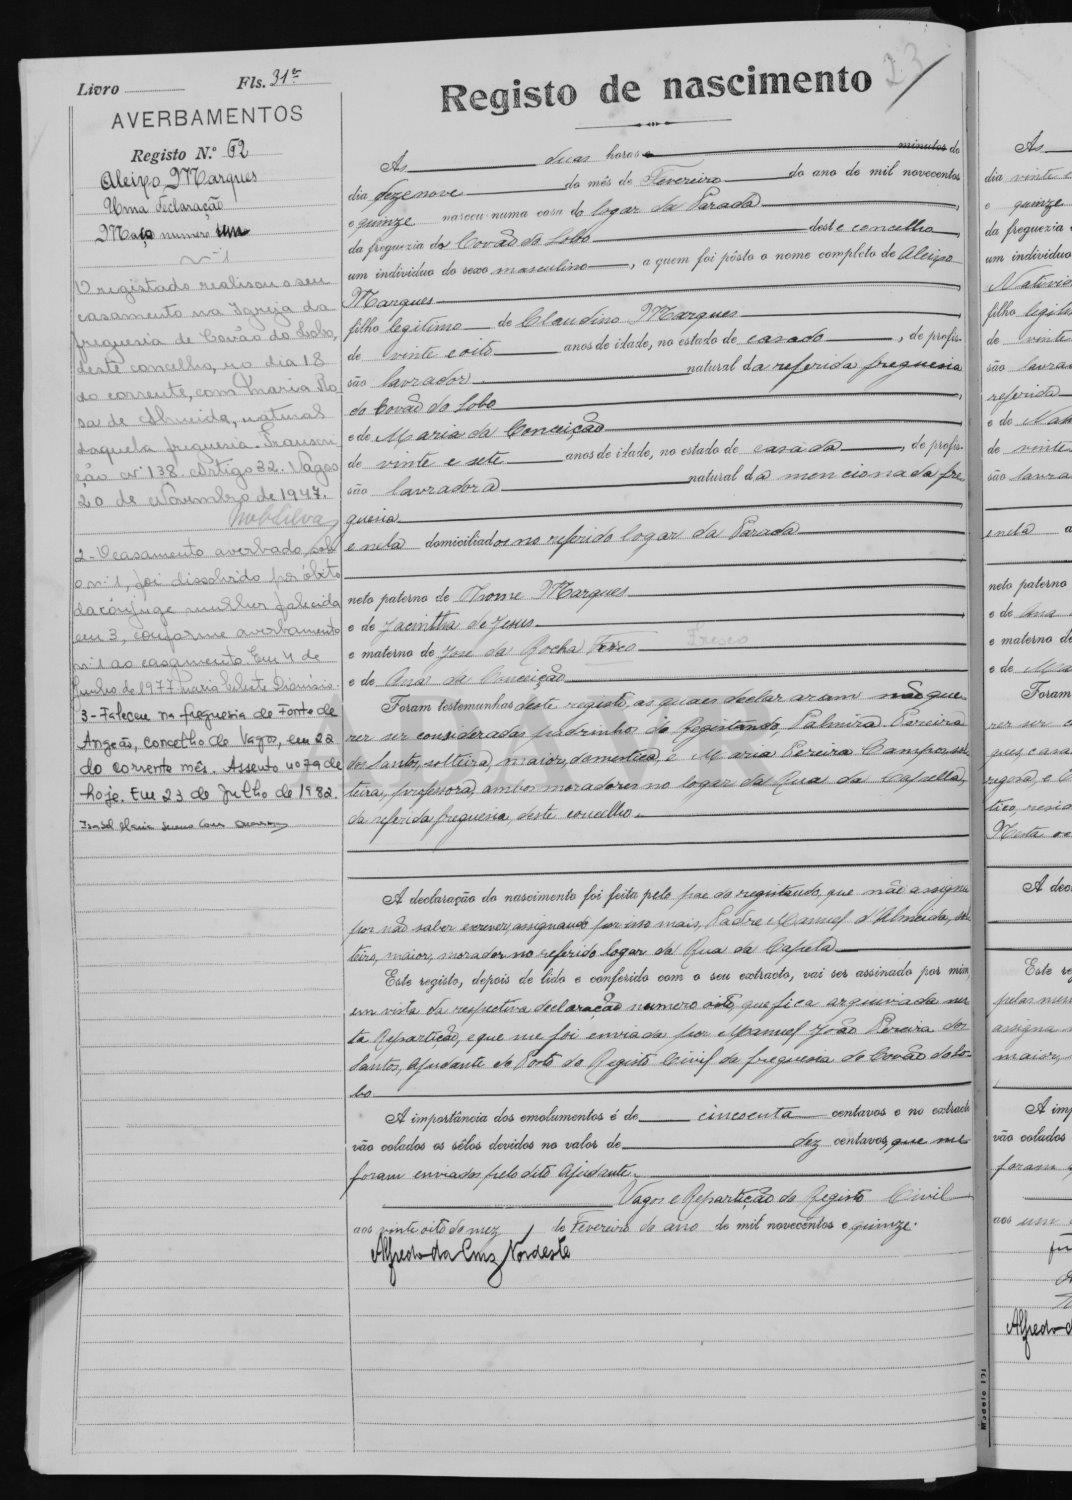 Livro Fls. 31v
AVERBAMENTOS
Registo N.º 62
Aleixo Marques
Uma declaração
Maço numero um
N.º 1
O registado realisou o seu
casamento na Igreja da
freguesia de Covão do Lobo,
deste concelho, no dia 18
do corrente, com Maria Ro
sa de Almeida, natural
daquela freguesia. Transcri
ção nº 138. Artigo 32. Vagos
20 de Novembro de 1947.
2- O casamento averbado sob
o nº 1, foi dissolvido por óbito
da cônjuge mulher falecida
em 3, conforme averbamento
nº 1 ao casamento. Em 4 de
Junho de 1977. Maria Celeste Dionísio.
3- Faleceu na freguesia de Fonte de
Angeão, concelho de Vagos, em 22
do corrente mês. Assento nº 79 de
hoje. Em 23 de Julho de 1982.
23
Registo de nascimento
Ás duas horas e minutos do
dia dezenove do mês de Fevereiro do ano de mil novecentos
e quinze nasceu numa casa do logar da Parada
da freguezia do Covão do Lobo deste concelho,
um individuo do sexo masculino, a quem foi pôsto o nome completo de Aleixo
Marques
filho legitimo de Claudino Marques
de vinte e oito anos de idade, no estado de casado, de profis-
são lavrador natural da referida freguesia
do Covão do Lobo
e de Maria da Conceição
de vinte e sete anos de idade, no estado de casada, de profis-
são lavradora natural da mencionada fre
guesia
e nela domiciliados no referido logar da Parada
neto paterno de Thome Marques
e de Jacintha de Jesus
e materno de José da Rocha Fresco
e de Ana da Conceição
Foram testemunhas deste registo, as quaes declararam não que
rer ser consideradas padrinhos do Registando, Palmira Pereira
dos Santos, solteira, maior, domestica, e Maria Pereira Campos, sol
teira, professora, ambas moradores no logar da Rua da Capella,
da referida freguesia, deste concelho.
A declaração do nascimento foi feita pelo pae do registando, que não assigna
por não saber escrever, assignando por isso mais, Padre Manuel d'Almeida, sol
teiro, maior, morador no referido logar da Rua da Capela
Este registo, depois de lido e conferido com o seu extracto, vai ser assinado por mim,
em vista da respectiva declaração numero oito, que fica arquivada nes
ta Repartição, e que me foi enviada por Manuel João Pereira dos
Santos, Ajudante do Posto do Registo Civil da freguesia de Covão do Lo-
bo
A importância dos emolumentos é de cincoenta centavos e no extracto
vão colados os sêlos devidos no valor de dez centavos, que me
foram enviados pelo dito Ajudante.
Vagos e Repartição do Registo Civil
aos vinte oito do mez de Fevereiro do ano de mil novecentos e quinze.
Alfredo da Cruz Nordeste
Modelo 131